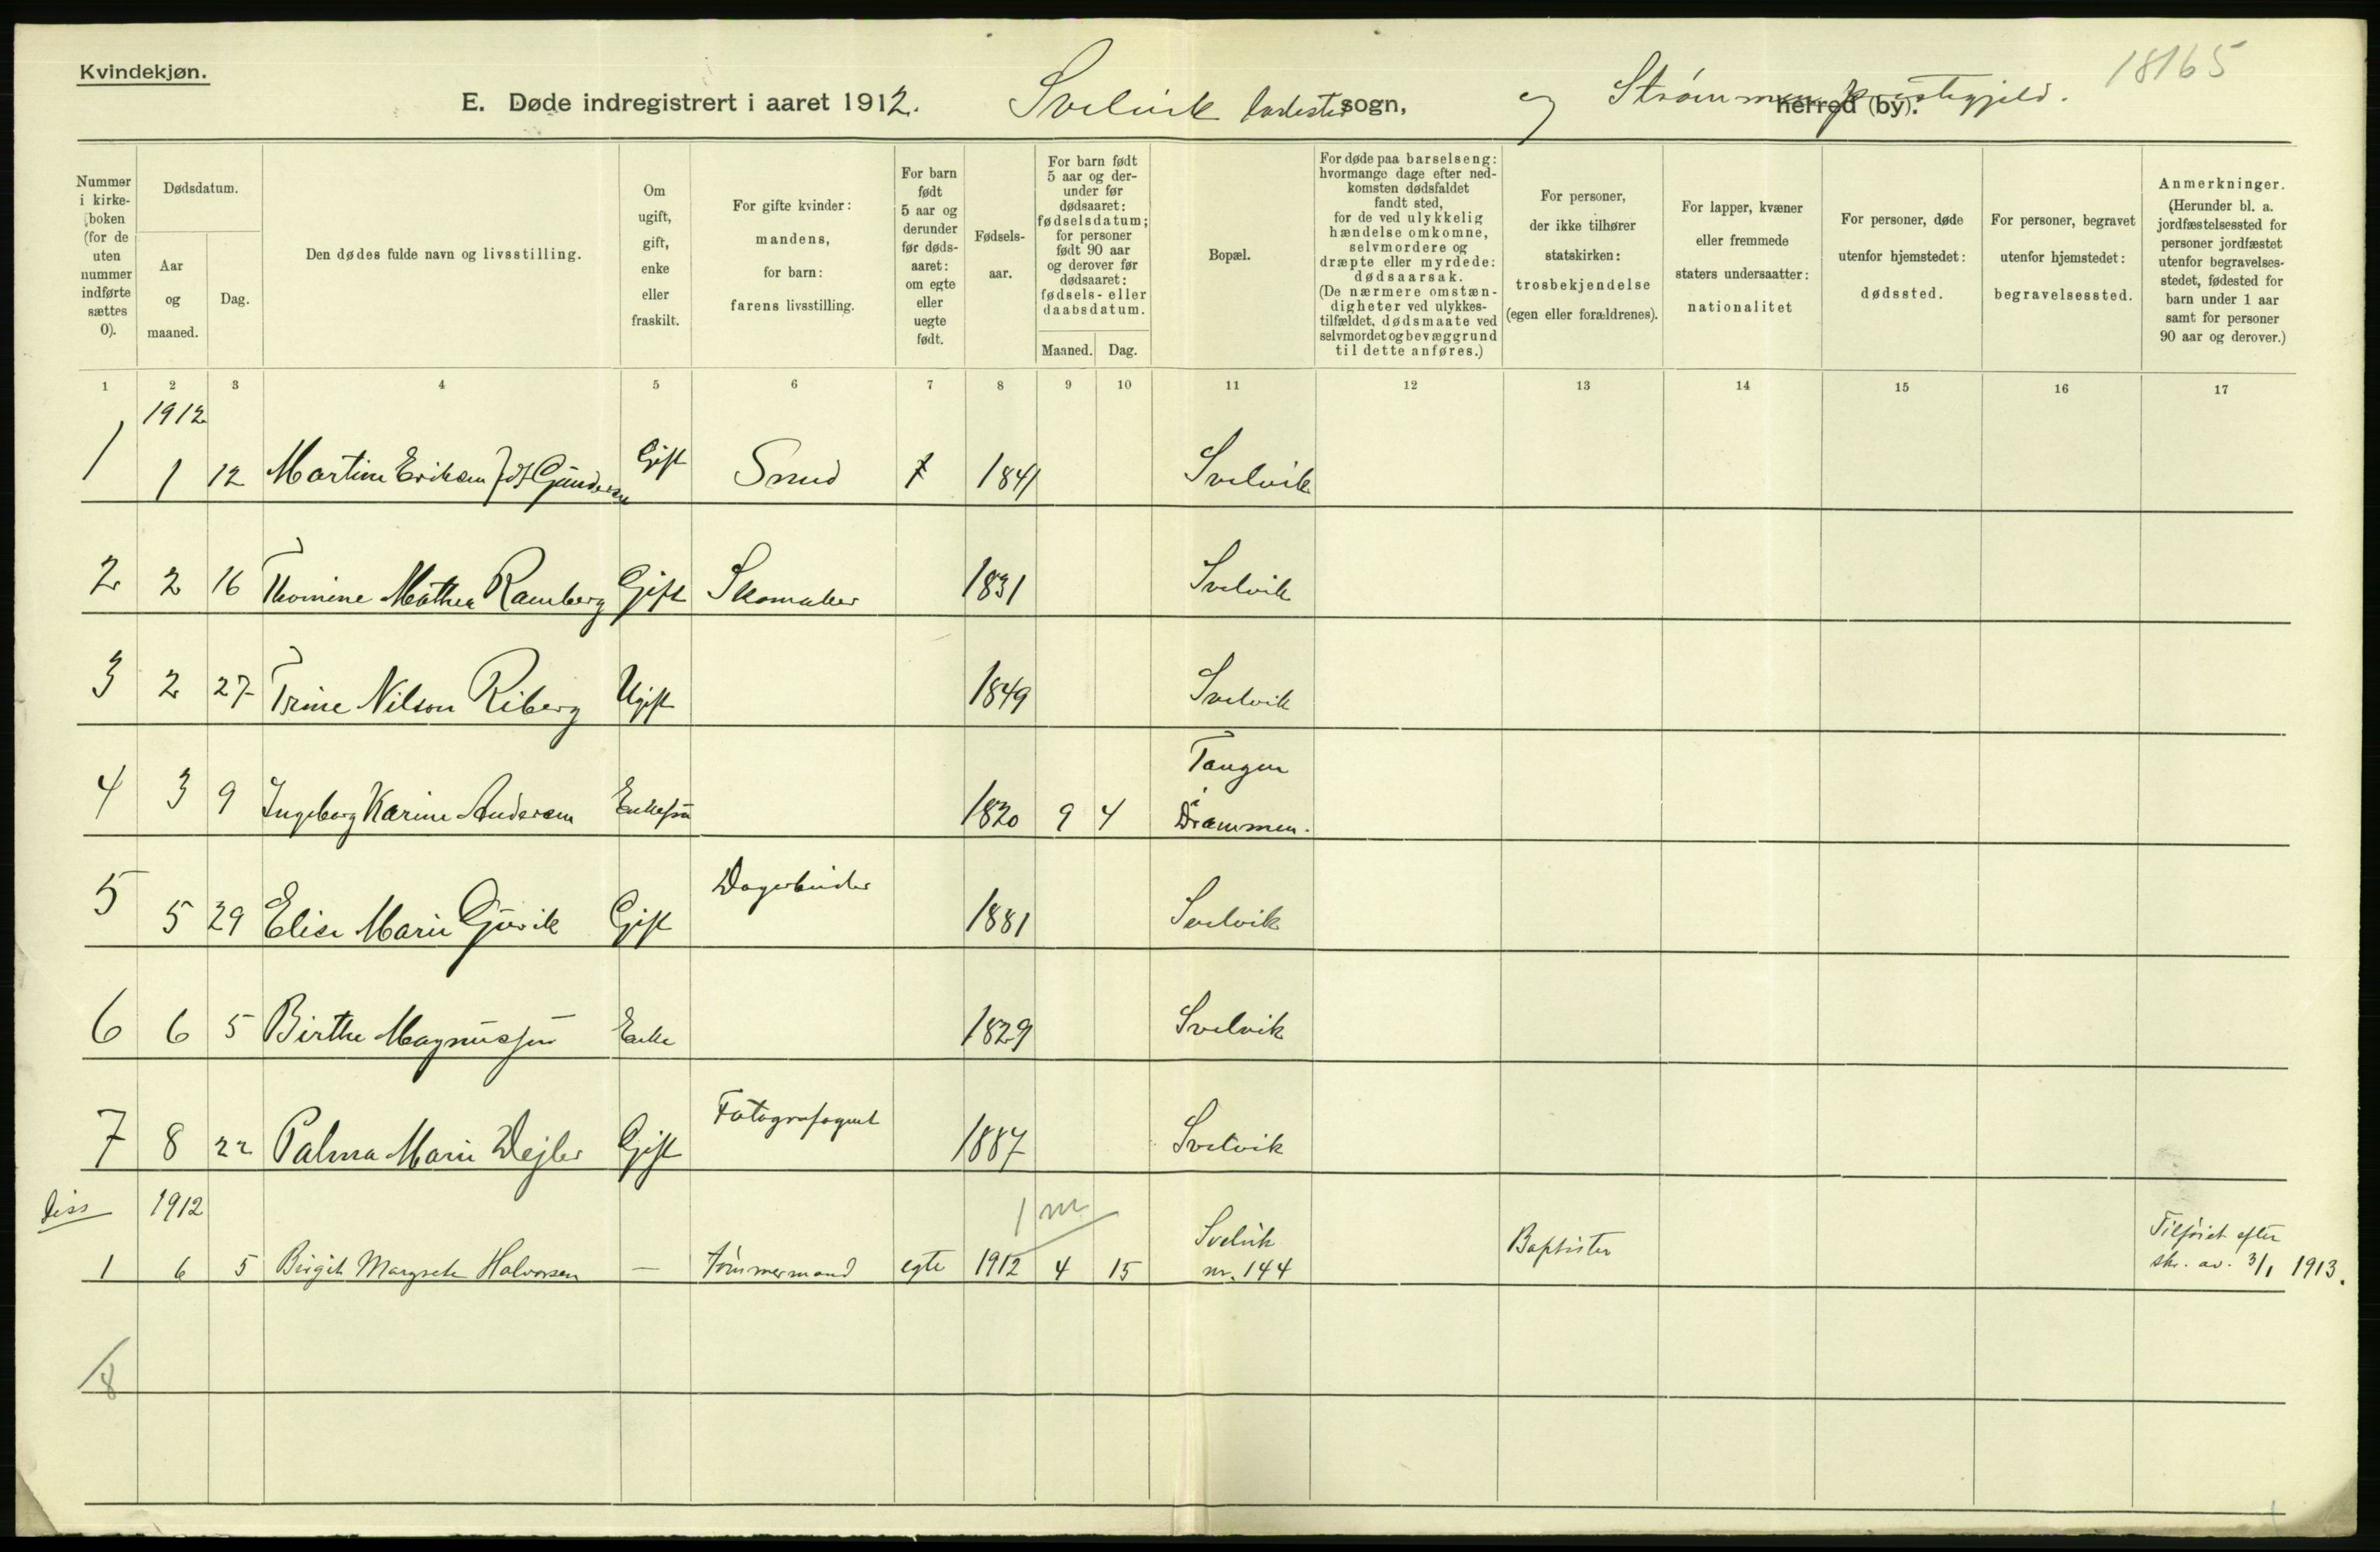 Kvindekjøn.
18165
E. Døde indregistrert i aaret 1912. Svelvik ladested sogn, og Strømmen herred (by). præstegjeld.
Nummer i kirkeboken (for de uten nummer indførte sættes 0).
Dødsdatum.
Aar og maaned.
Dag.
Den dødes fulde navn og livsstilling.
Om ugift, gift, enke eller fraskilt.
For gifte kvinder: mandens, for barn: farens livsstilling.
For barn født 5 aar og derunder før dødsaaret: om egte eller uegte født.
Fødselsaar.
For barn født 5 aar og derunder før dødsaaret: fødselsdatum; for personer født 90 aar og derover før dødsaaret: fødsels- eller daabsdatum.
Maaned.
Dag.
Bopæl.
For døde paa barselseng: hvormange dage efter nedkomsten dødsfaldet fandt sted, for de ved ulykkelig hændelse omkomne, selvmordere og dræpte eller myrdede: dødsaarsak. (De nærmere omstændigheter ved ulykkestilfældet, dødsmaate ved selvmordet og bevæggrund til dette anføres.)
For personer, der ikke tilhører statskirken: trosbekjendelse (egen eller forældrenes).
For lapper, kvæner eller fremmede staters undersaatter: nationalitet
For personer, døde utenfor hjemstedet: dødssted.
For personer, begravet utenfor hjemstedet: begravelsessted.
Anmerkninger. (Herunder bl. a. jordfæstelsessted for personer jordfæstet utenfor begravelsesstedet, fødested for barn under 1 aar samt for personer 90 aar og derover.)
1 2 3 4 5 6 7 8 9 10 11 12 13 14 15 16 17
1912
1 1 12 Martine Eriksen Gundersen Gift Smed 1841 Svelvik
2 2 16 Thomine Mathea Ramberg Gift Skomaker 1831 Svelvik
3 2 27 Trine Nilson Riberg Ugift 1849 Svelvik
4 3 9 Ingeborg Karine Andersen Enkefru 1820 9 4 Tangen i Drammen.
5 5 29 Elise Marie Gjøvik Gift 1881 Svelvik
6 6 5 Birthe Magnussen Enke 1829 Svelvik
7 8 22 Palma Marie Wejler Gift Fotografagent 1887 Svelvik
diss 1912 1 m
1 6 5 Birgit Margrete Halvorsen — tømmermand egte 1912 4 15 Svelvik nr. 144 Baptister Tilføiet efter skr. av. 3/1 1913.
8